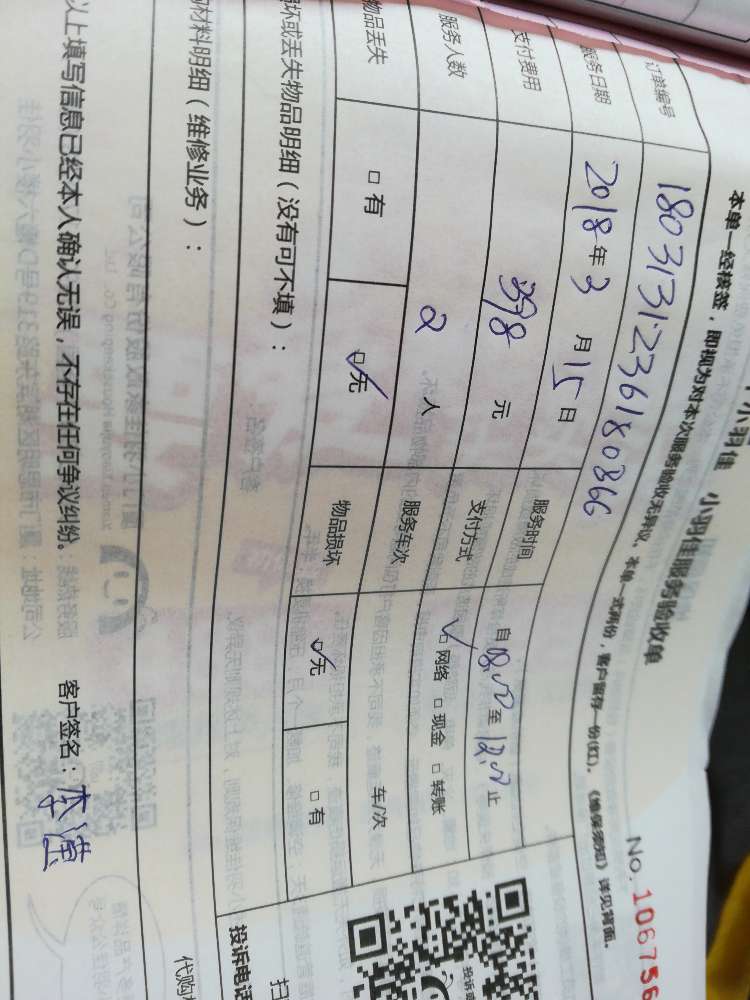 小羽佳 小羽佳服务验收单
本单一经核签，即视为对本次服务验收无异议，本单一式两份，客户留存一份(红)。《维保须知》详见背面。
No. 106756
订单编号 1803131236180866
服务日期 2018年3月15日 服务时间 自08:00至12:00止
支付费用 398元 支付方式 ☑网络 □现金 □转账
服务人数 2人 服务车次 车/次
物品丢失 □有 ☑无 物品损坏 ☑无 □有
坏或丢失物品明细（没有可不填）：
材料明细（维修业务）：
代购
以上填写信息已经本人确认无误，不存在任何争议纠纷。 客户签名：
投诉电话
扫
投诉